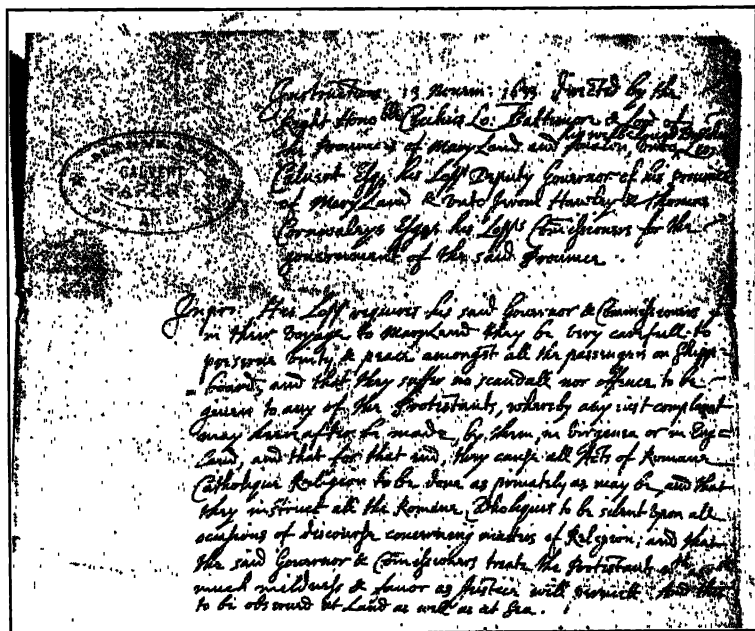 Instructions 13 Novem: 1633 directed by the
Right Hono ble Cecilius Lo: Baltimore & Lord of
the Provinces of Mary Land and Avalon unto his well beloved Brother Leo:
Calvert Esqr his Lops Deputy Governor of his province
of Mary Land & unto Jerom Hawley & Thomas
Cornwaleys Esqrs his Lops Comissioners for the
government of the said Province.
CALVERT
Inpri: His Lopp requires his said Governor & Commissioners yt
in their voyage to Mary Land they be very carefull to
preserve unity & peace amongst all the passengers on Shipp-
board, and that they suffer no scandall nor offence to be
given to any of the Protestants, whereby any just complaint
may heereafter be made, by them, in Virginea or in Eng-
land, and that for that end, they cause all Acts of Romane
Catholique Religion to be done as privately as may be, and that
they instruct all the Romane Catholiques to be silent upon all
occasions of discourse concerning matters of Religion; and that
the said Governor & Comissioners treate the Protestants wth as
much mildness & favor as Justice will permitt. And this
to be observed at Land as well as at Sea.